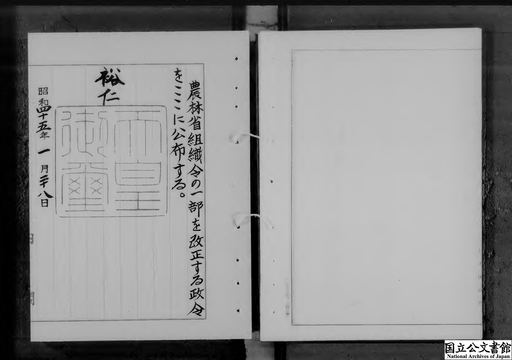 農林省組織令の一部を改正する政令
をここに公布する。
裕仁
天皇
御璽
昭和四十五年一月二十八日
国立公文書館
National Archives of Japan